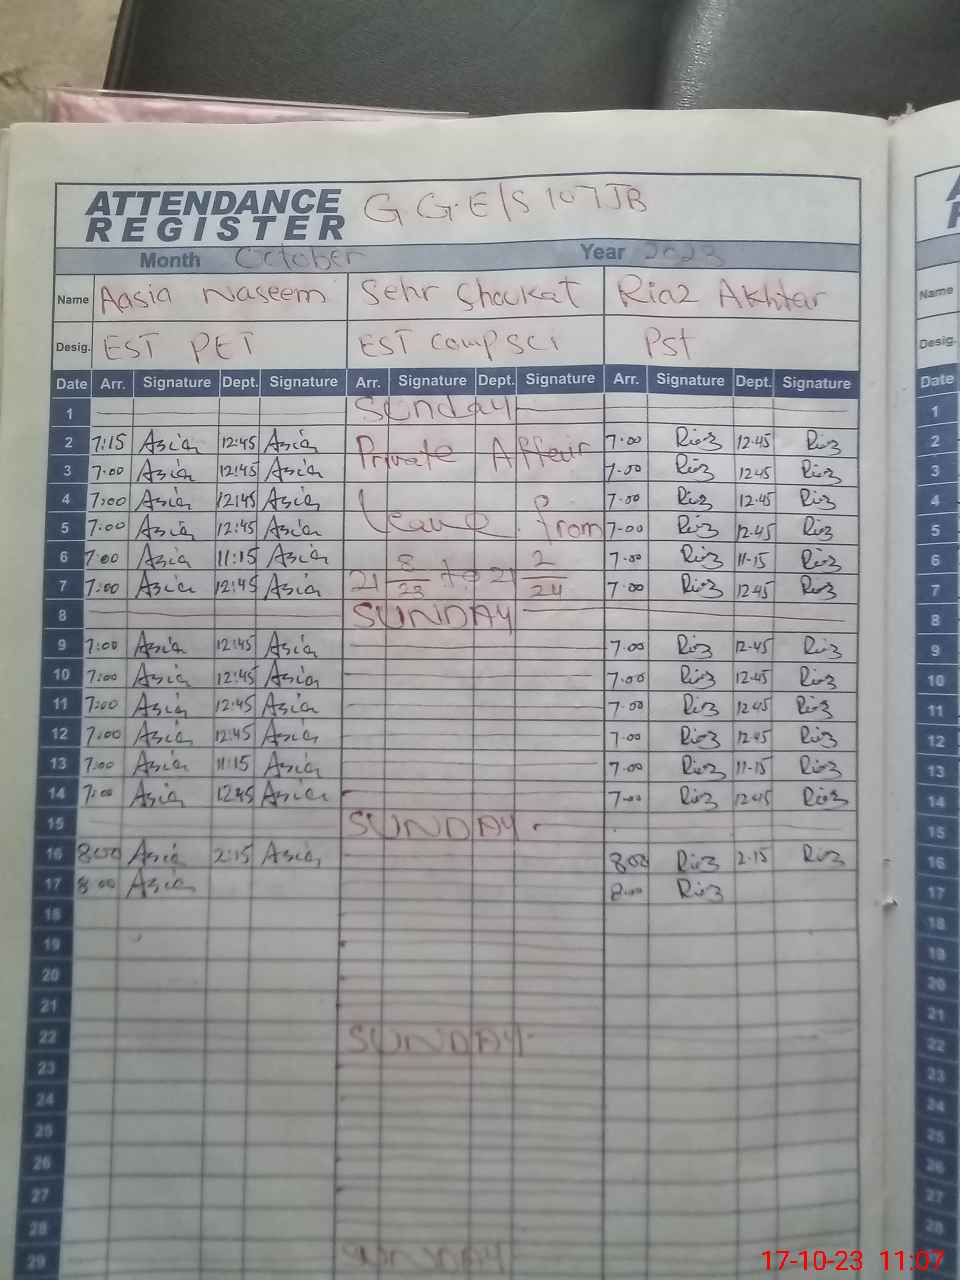 ATTENDANCE REGISTER G G.E/S 107JB
Month October Year 2023
Name Aasia Naseem Sehr Shoukat Riaz Akhtar Name
Desig. EST PET EST Comp SCI Pst Desig.
Date Arr. Signature Dept. Signature Arr. Signature Dept. Signature Arr. Signature Dept. Signature Date
1 Sunday 1
2 7:15 Asia 12:45 Asia Private Affair 7.00 Riaz 12.45 Riaz 2
3 7:00 Asia 12:45 Asia 7.00 Riaz 12.45 Riaz 3
4 7:00 Asia 12:45 Asia 7.00 Riaz 12.45 Riaz 4
5 7:00 Asia 12:45 Asia leave from 7.00 Riaz 12.45 Riaz 5
6 7:00 Asia 11:15 Asia 7.00 Riaz 11-15 Riaz 6
7 7:00 Asia 12:45 Asia 21 8/23 to 21 2/24 7.00 Riaz 12.45 Riaz 7
8 SUNDAY 8
9 7:00 Asia 12:45 Asia 7.00 Riaz 12.45 Riaz 9
10 7:00 Asia 12:45 Asia 7.00 Riaz 12.45 Riaz 10
11 7:00 Asia 12:45 Asia 7.00 Riaz 12.45 Riaz 11
12 7:00 Asia 12:45 Asia 7.00 Riaz 12.45 Riaz 12
13 7:00 Asia 11:15 Asia 7.00 Riaz 11-15 Riaz 13
14 7:00 Asia 12:45 Asia 7.00 Riaz 12.45 Riaz 14
15 SUNDAY 15
16 8:00 Asia 2:15 Asia 8.00 Riaz 2.15 Riaz 16
17 8:00 Asia 8.00 Riaz 17
18 18
19 19
20 20
21 21
22 SUNDAY 22
23 23
24 24
25 25
26 26
27 27
28 28
29 SUNDAY
17-10-23 11:07